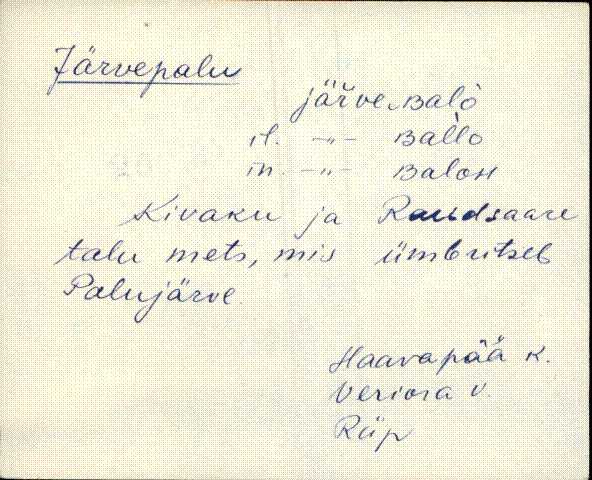 Järvepalu
järve ʙalò
il. -"- ʙal̀lo
in. -"- ʙaloн
Kivaku ja Raudsaare
talu mets, mis ümbritseb
Palujärve.
Haavapää k.
Veriora v.
Riip